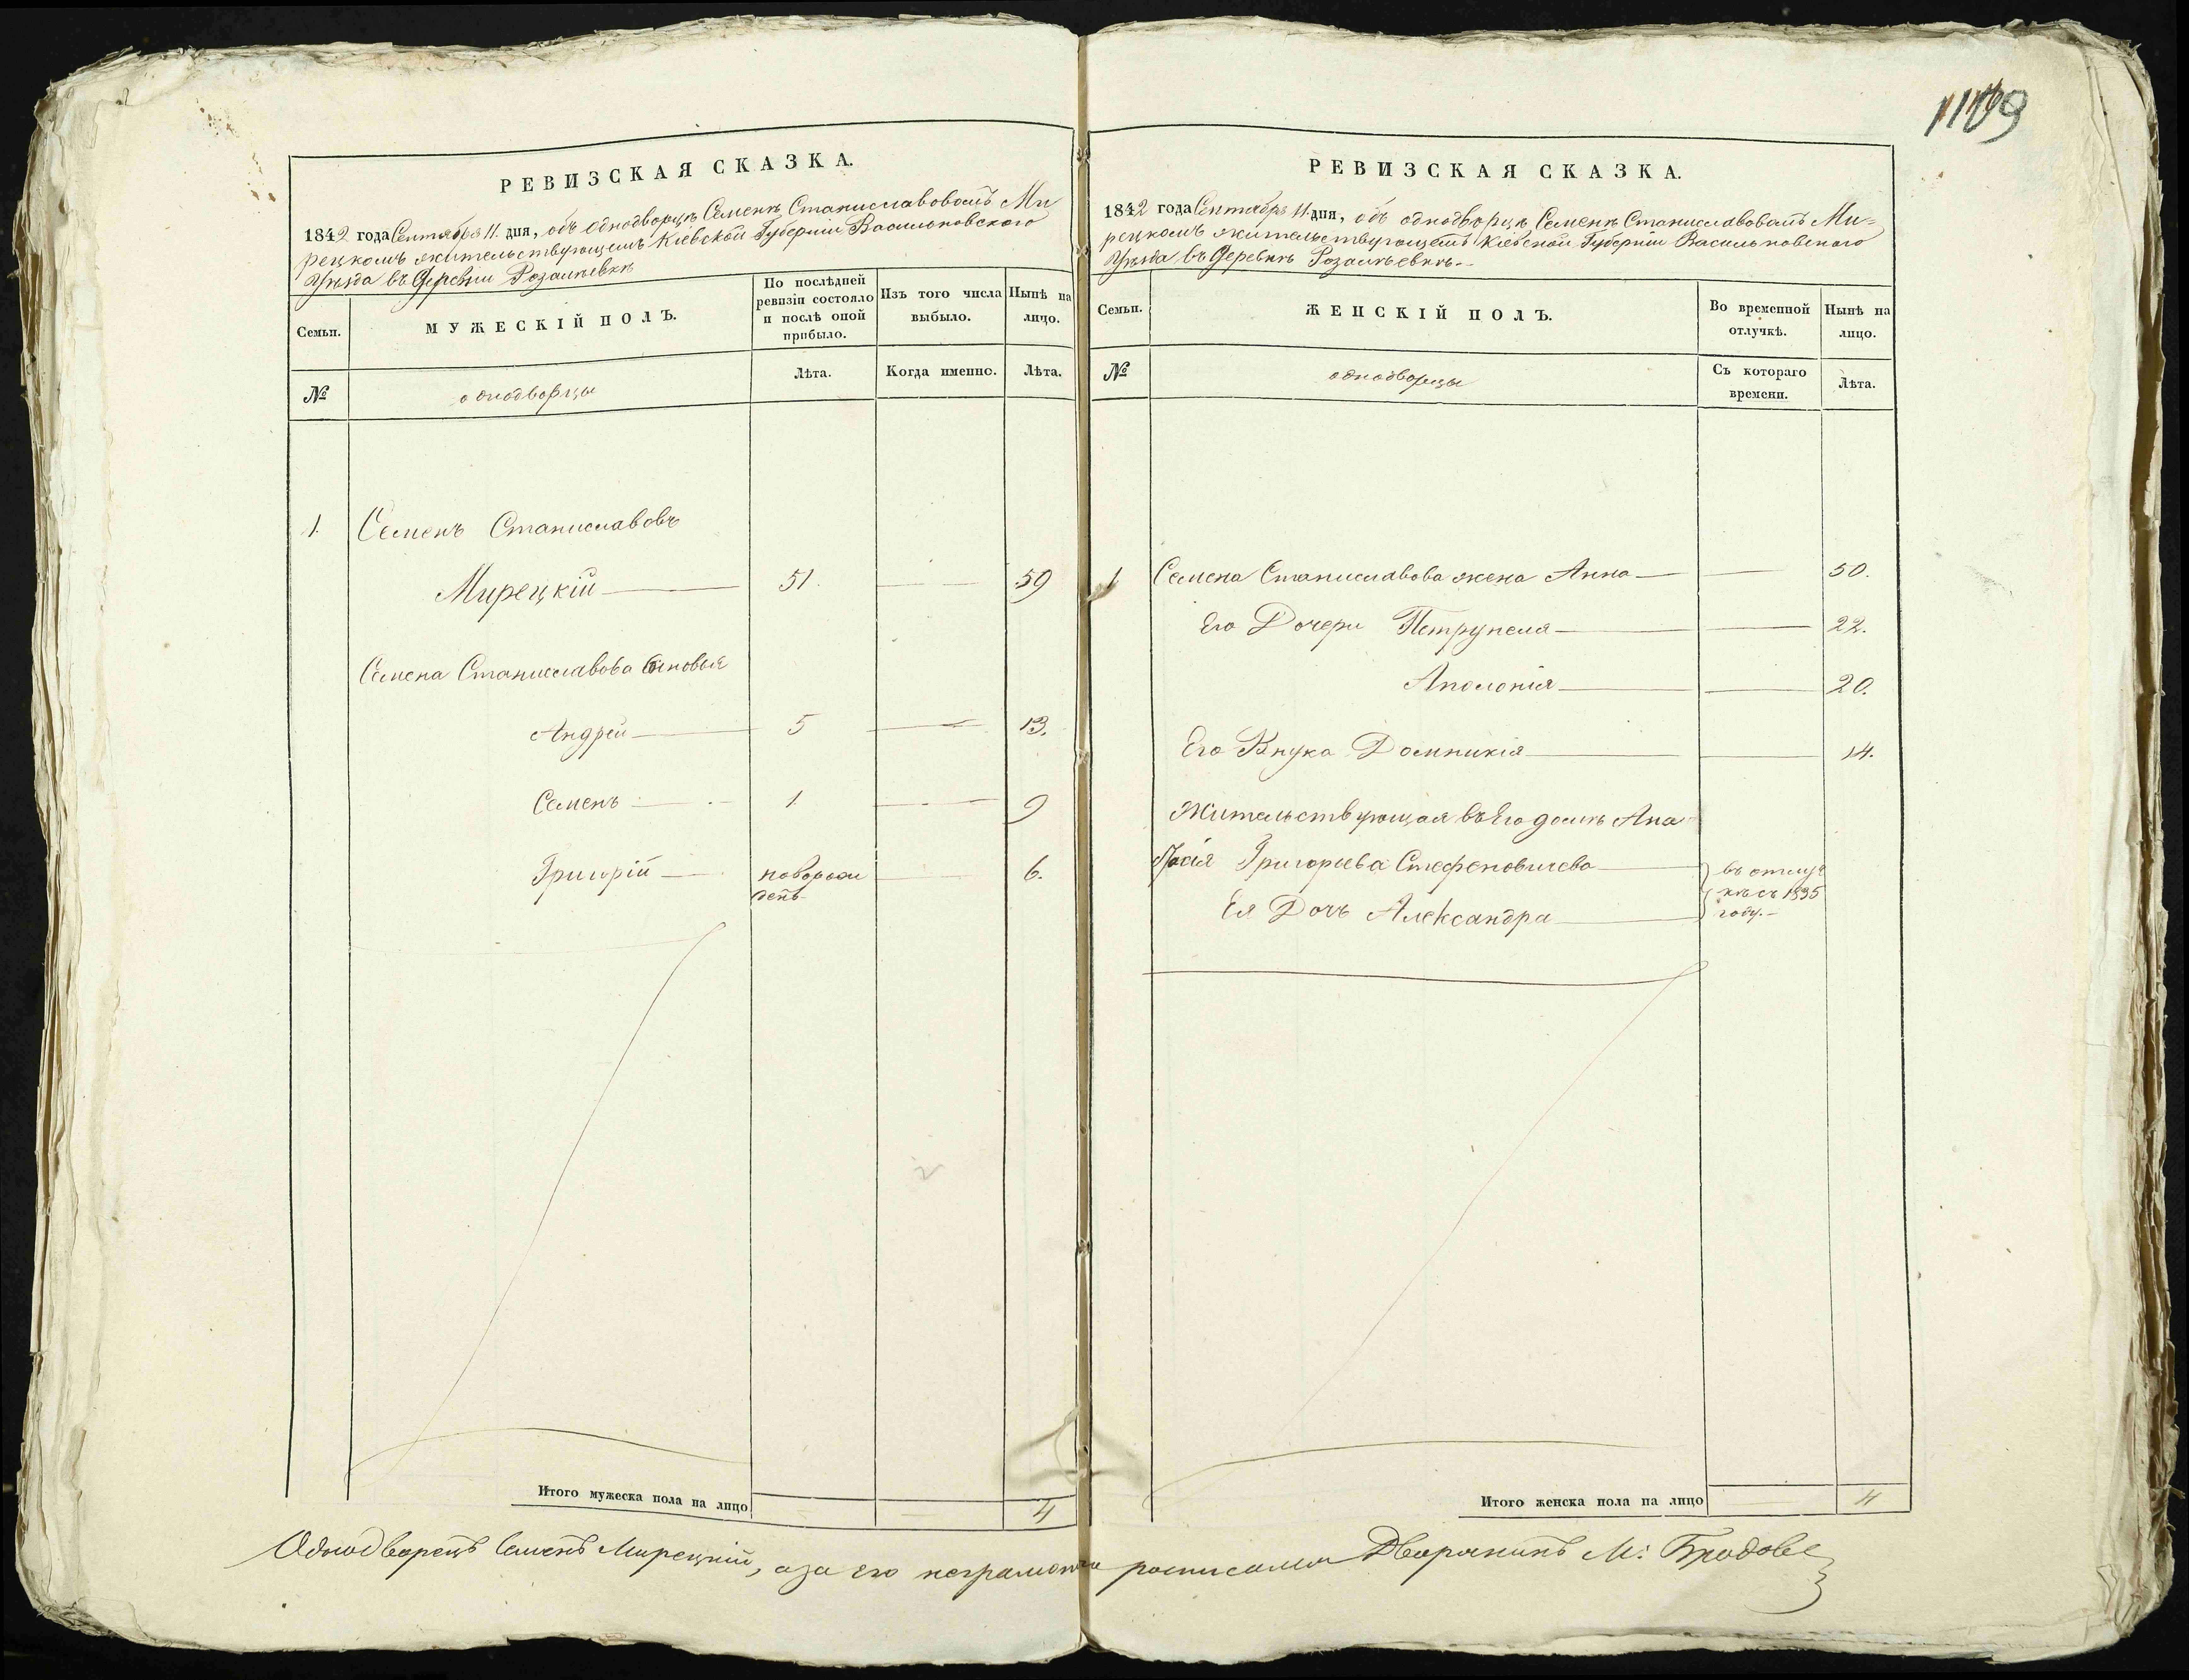 РЕВИЗСКАЯ СКАЗКА.
1842 года Сентября 11. дня, объ однодворцѣ Семенѣ Станиславовомъ Ми
рецкомъ жительствующемъ Кіевской Губерніи Васильковскаго
Уѣзда въ Деревни Розалѣевкѣ
Семьи.
МУЖЕСКІЙ ПОЛЪ.
По послѣдней
ревизіи состояло
и послѣ оной
прибыло.
Изъ того числа
выбыло.
Нынѣ на
лицо.
№
однодворцы
Лѣта.
Когда именно.
Лѣта.
1. Семенъ Станиславовъ
Мирецкій — 51. — 59
Семена Станиславова Сыновья
Андрей — 5 — 13.
Семенъ — 1. — 9
Григорій — новорож — 6.
денъ
Итого мужеска пола на лицо — 4
1109
РЕВИЗСКАЯ СКАЗКА.
1842 года Сентября 11. дня, объ однодворцѣ Семенѣ Станиславовомъ Ми-
рецкомъ жительствующемъ Кіевской Губерніи Васильковскаго
Уѣзда въ Деревнѣ Розалѣевкѣ.-
Семьи.
ЖЕНСКІЙ ПОЛЪ.
Во временной
отлучкѣ.
Нынѣ на
лицо.
№
однодворцы
Съ котораго
времени.
Лѣта.
1 Семена Станиславова жена Анна — — 50.
Его Дочери Петрунеля — — 22.
Аполонія — — 20.
Его Внука Домникія — — 14.
Жительствующая въ Его домѣ Ана
Григорьева Стефановичева — въ отлуч
кѣ съ 1835
Ея Дочь Александра — году.-
Итого женска пола на лицо 4
Однодворецъ Семенъ Мирецкій, а за его неграмотна росписался Дворянинъ М: Бродовс